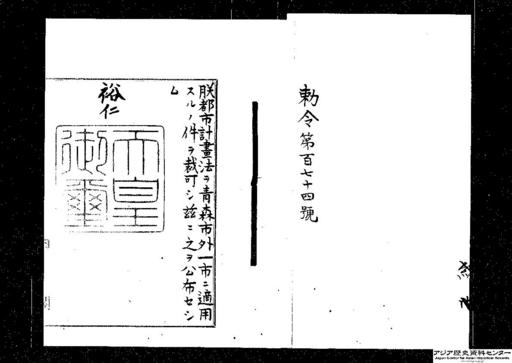 勅令第百七十四號
朕都市計畫法ヲ青森市外一市ニ適用
スルノ件ヲ裁可シ茲ニ之ヲ公布セシ
ム
裕仁
天皇
御璽
アジア歴史資料センター
Japan Center for Asian Historical Records